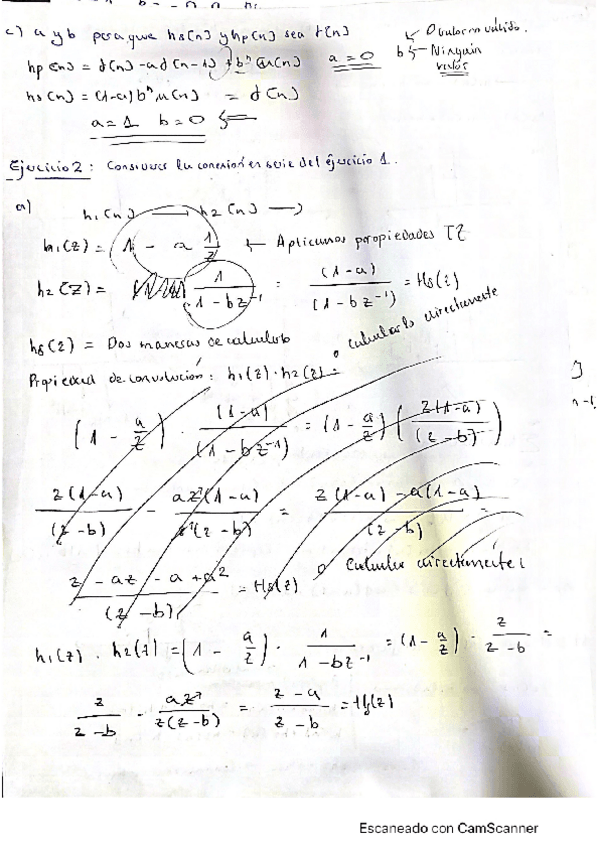 c) a y b para que hs[n] y hp[n] sea δ[n]
hp[n] = δ[n] - aδ[n-1] + bⁿ u[n] a = 0 b Ningún valor
hs[n] = (1-a) bⁿ u[n] = δ[n]
a = 1 b = 0
Ejercicio 2: Considerar la conexión en serie del ejercicio 1.
a)
h₁[n] → h₂[n] →
h₁(z) = 1 - a 1/z ← Aplicamos propiedades TZ
h₂(z) = 1/(1 - bz⁻¹) = (1-a)/(1 - bz⁻¹) = Hs(z)
hs(z) = Dos maneras de calcularlo
o calcularlo directamente
Propiedad de convolución: h₁(z) · h₂(z) =
(1 - a/z) · (1-a)/(1 - bz⁻¹) = (1 - a/z) (z(1-a)/(z-b))
z(1-a)/(z-b) - az(1-a)/z(z-b) = z(1-a) - a(1-a)/(z-b) =
z - az - a + a²/(z-b) = Hs(z)
o Calcular directamente:
h₁(z) · h₂(z) = (1 - a/z) · 1/(1 - bz⁻¹) = (1 - a/z) · z/(z-b) =
z/(z-b) - az/z(z-b) = z-a/z-b = Hs(z)
Escaneado con CamScanner